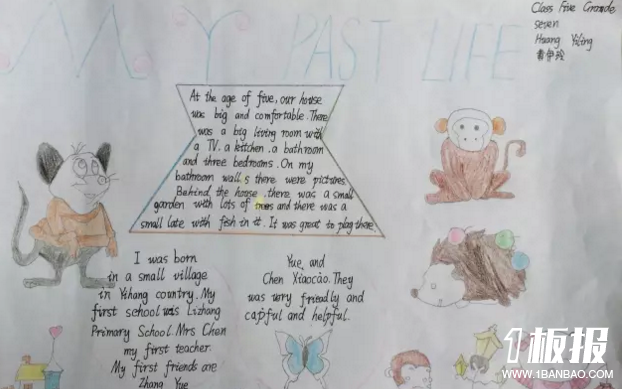 MY PAST LIFE
Class Five Grande
seven
Huang Yiling
At the age of five, our house
was big and comfortable. There
was a big living room with
a TV. a kitchen. a bathroom
and three bedrooms. On my
bathroom wall s there were pictures
Behind the house, there was a small
garden with lots of trees and there was a
small late with fish in it. It was great to play there.
I was born
in a small village
in Yihang country. My
first school was Lizhang
Primary School. Mrs Chen
my first teacher.
My first friends are
Zhang Yue
Yue and
Chen Xiaocao. They
was very friendly and
capful and helpful.
1板报
WWW.1BANBAO.COM